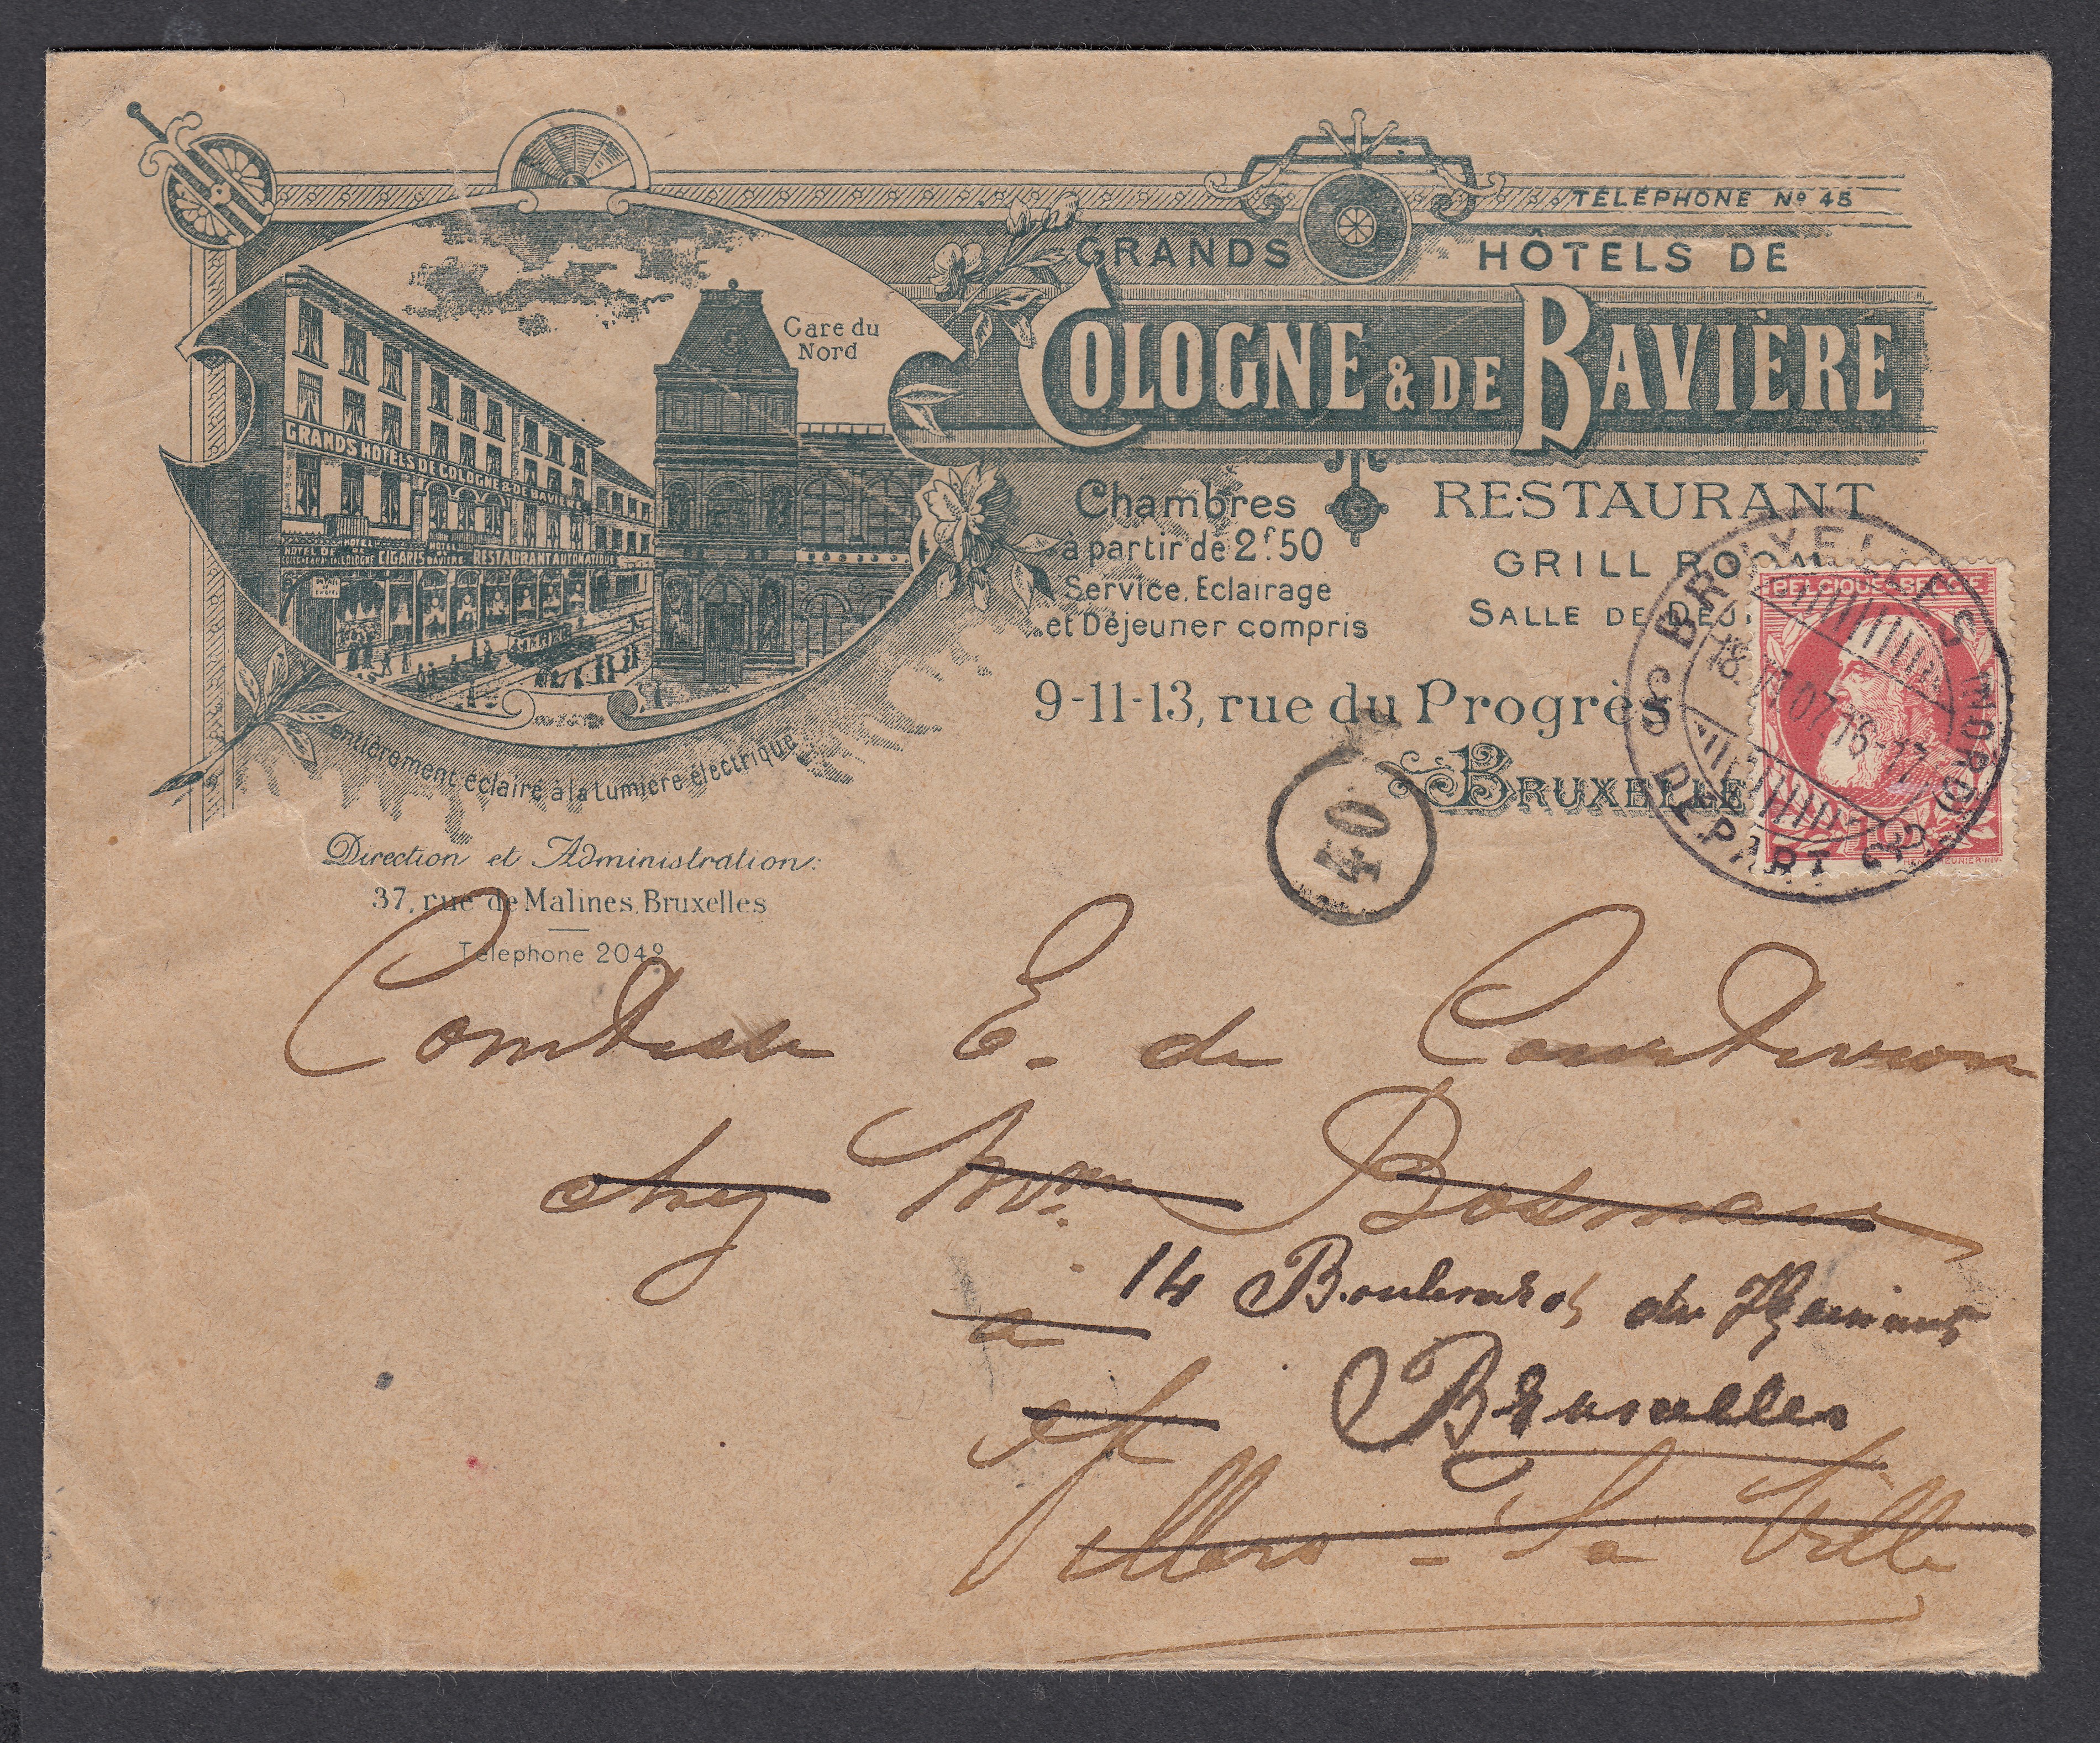 TÉLÉPHONE Nº 45
GRANDS HÔTELS DE
COLOGNE & DE BAVIÈRE
Gare du
Nord
GRANDS HOTELS DE COLOGNE & DE BAVI
HOTEL DE
HOTEL
DE
COLOGNE
CIGARES
HOTEL
BAVIERE
RESTAURANT AUTOMATIQUE
entièrement éclairé à la Lumière électrique
Chambres
à partir de 2f50
Service, Eclairage
et Déjeuner compris
RESTAURANT
GRILL ROOM
SALLE DE DÉJ
9-11-13, rue du Progrès
BRUXELLE
Direction et Administration:
37, rue de Malines, Bruxelles
Téléphone 2042
BELGIQUE·BELGIË
10
BRUXELLES (NORD)
18 VI 07 16-17
DEPART
40
Comtesse E. de Courtivron
chez Mme Bosmans
14 Boulevard du
à
Bruxelles
Villers-la-Ville